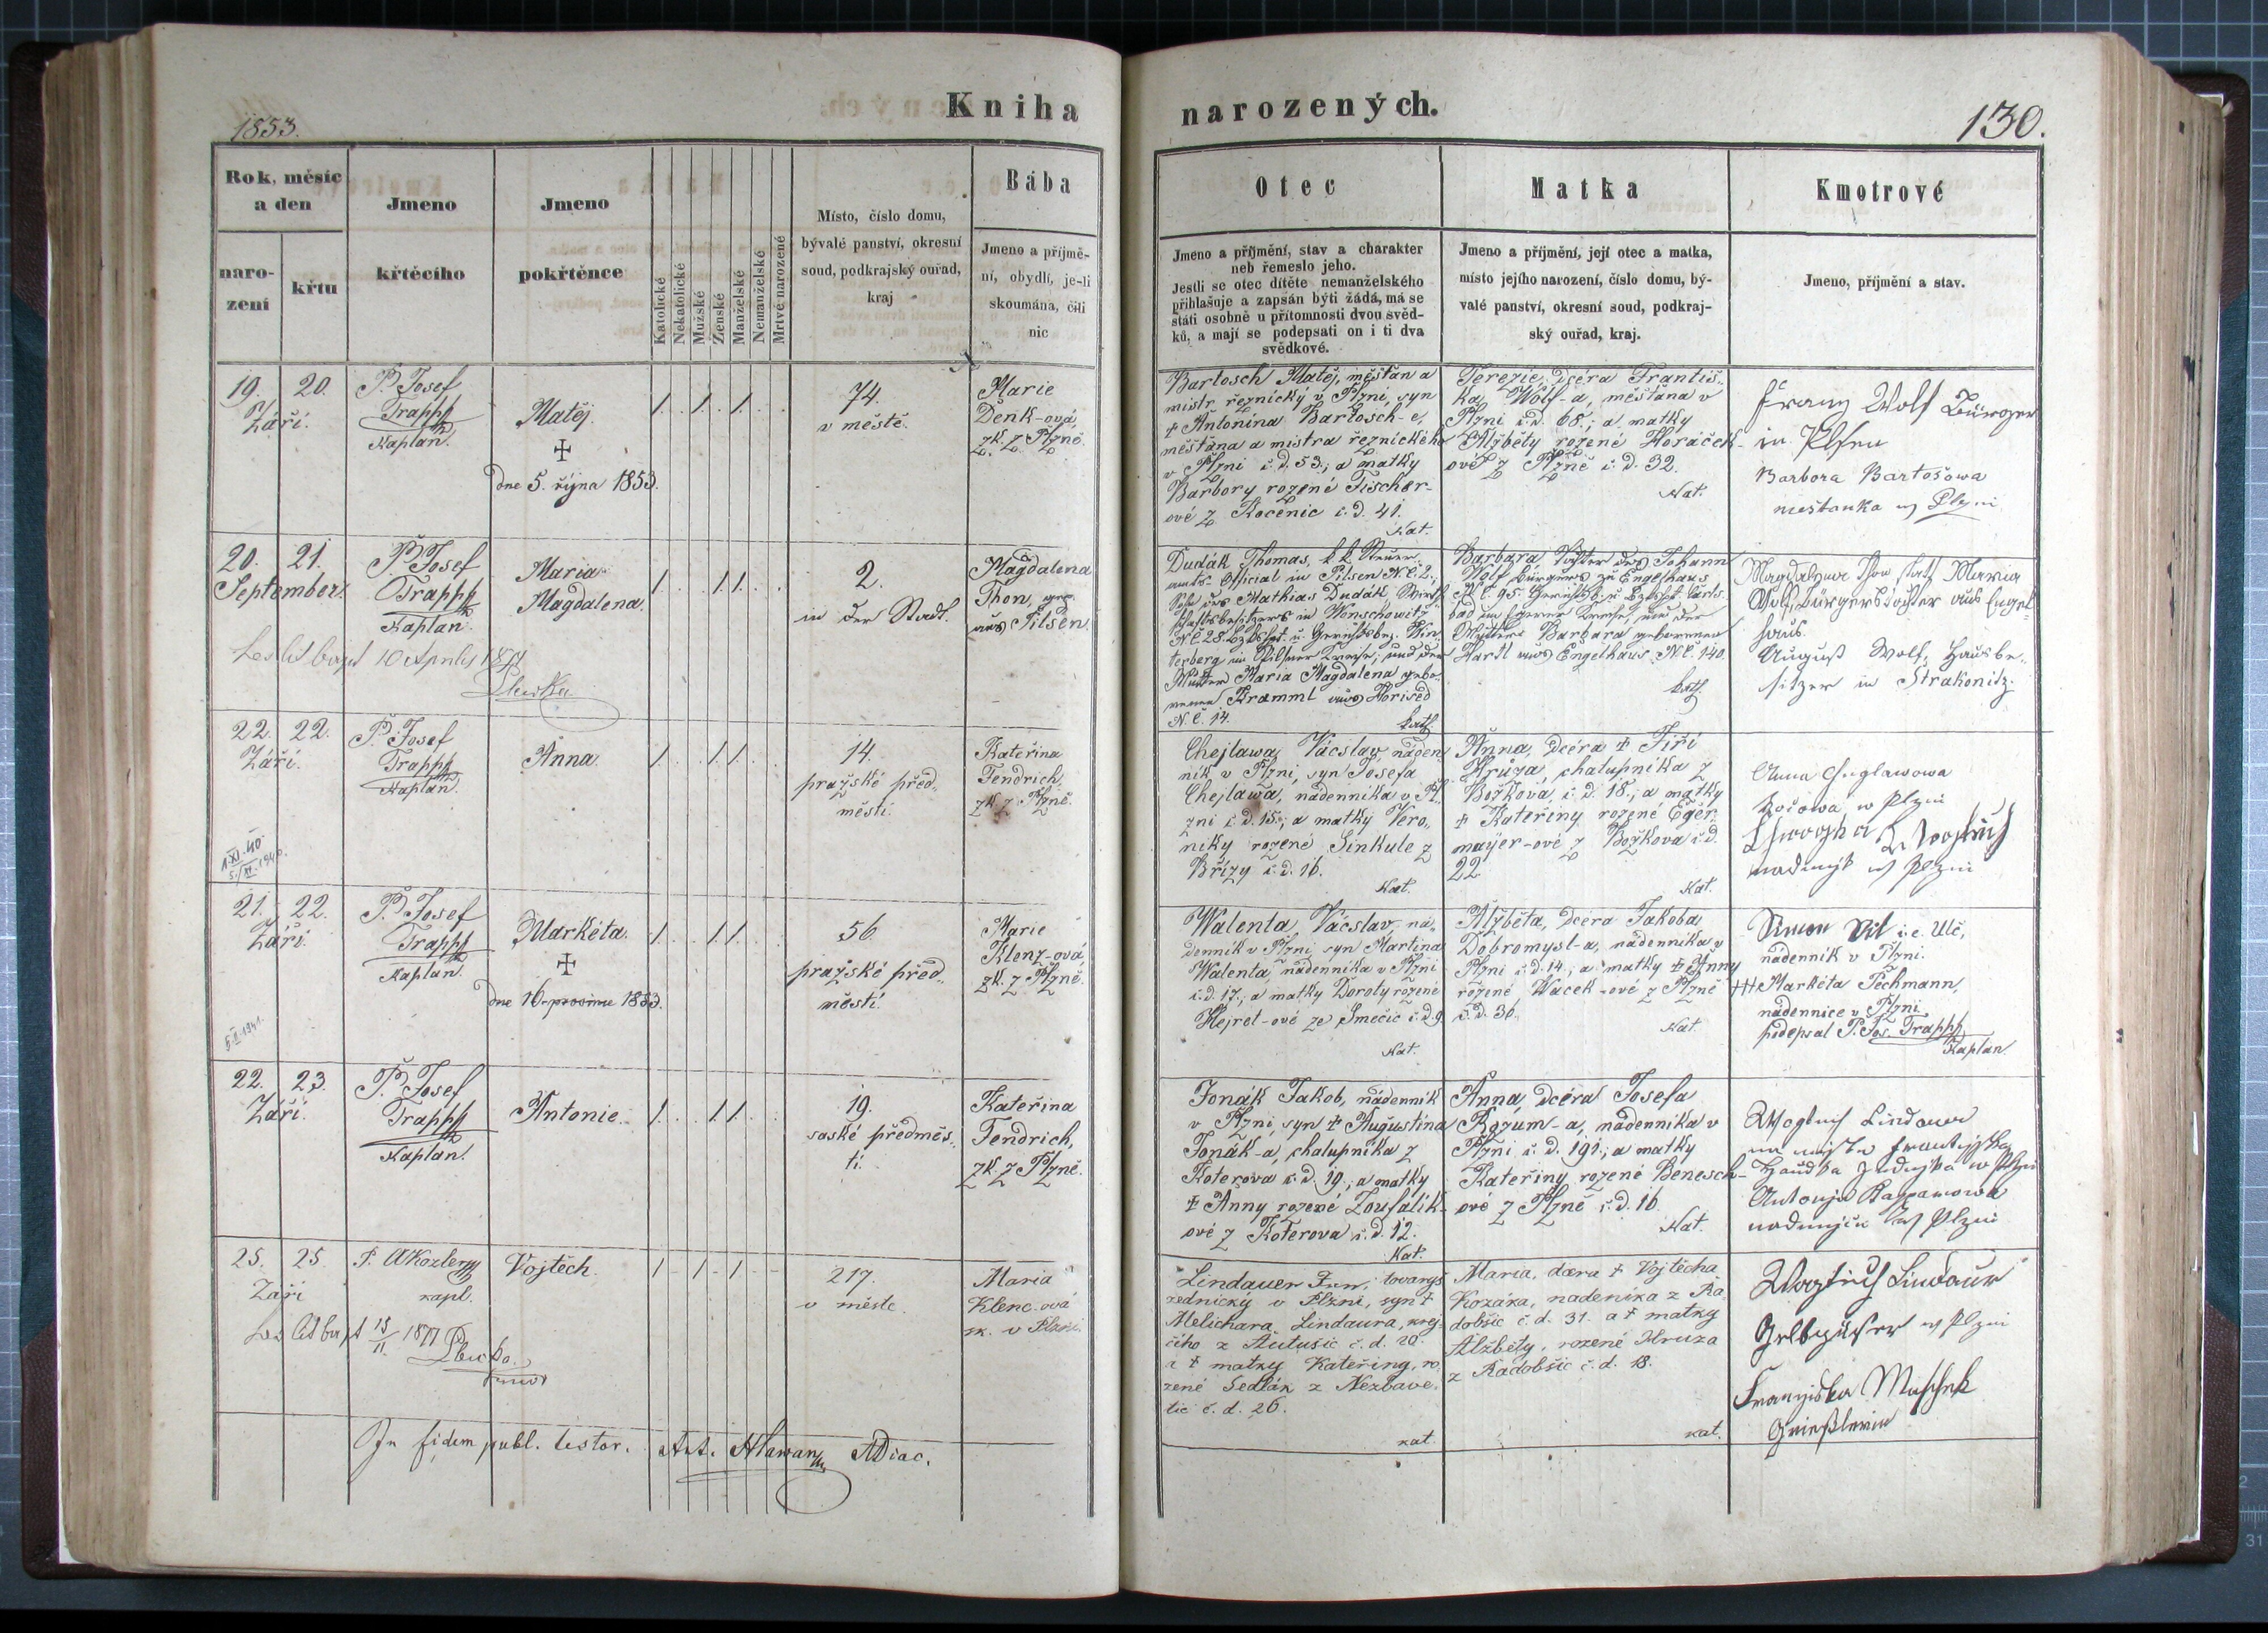 1853.
Kniha
narozených.
130.
Rok, měsíc
a den
naro-
zení
křtu
Jmeno
křtěcího
Jmeno
pokřtěnce
Katolické
Nekatolické
Mužské
Ženské
Manželské
Nemanželské
Mrtvě narozené
Místo, číslo domu,
bývalé panství, okresní
soud, podkrajský ouřad,
kraj
Bába
Jmeno a příjmě-
ní, obydlí, je-li
skoumána, čili
nic
Otec
Jmeno a příjmění, stav a charakter
neb řemeslo jeho.
Jestli se otec dítěte nemanželského
přihlašuje a zapsán býti žádá, má se
státi osobně u přítomnosti dvou svěd-
ků, a mají se podepsati on i ti dva
svědkové.
Matka
Jmeno a příjmění, její otec a matka,
místo jejího narození, číslo domu, bý-
valé panství, okresní soud, podkraj-
ský ouřad, kraj.
Kmotrové
Jmeno, příjmění a stav.
19. 20.
Září.
P. Josef
Trapp
Kaplan.
Matěj.
✝
dne 5. října 1853.
1. . 1. 1. .
74.
v městě.
Marie
Denk-ová,
zk. z Plzně.
Bartosch Matěj, měšťan a
mistr řeznický v Plzni, syn
✝ Antonína Bartosch-e,
měšťana a mistra řeznického
v Plzni č.d. 53.; a matky
Barbory rozené Fischer-
ové z Ročenic č.d. 41.
Kat.
Terezie, dcéra Františ-
ka Wolf-a, měšťana v
Plzni č.d. 68.; a matky
Alžběty rozené Horáček-
ové z Plzně č.d. 32.
Kat.
Franz Wolf Bürger
in Pilsen
Barbora Bartošowa
mešťanka w Plzni
20. 21.
September.
P. Josef
Trapp
Kaplan.
Maria
Magdalena.
1. . 1.1. .
2.
in der Stadt.
Magdalena
Thon, gep.
aus Pilsen.
10 Aprilis
Dudák Thomas, k.k. Steuer-
amts-Official in Pilsen N.C. 2.,
Sohn des Mathias Dudák, Wirth-
schaftsbesitzers in Wonschowitz
N.C. 28. Bzkspt. u. Gerichtsbez. Win-
terberg im Pilsner Kreise; und der
Mutter Maria Magdalena gebo-
renen Kramml aus Horised
N.C. 14.
kath.
Barbara, Tochter des Johann
Wolf, Bürgers zu Engelhaus
N.C. 95. Gerichtsb. u. Bzkspt. Carls-
bad im Egerer Kreise, und der
Mutter Barbara geborenen
Hartl aus Engelhaus N.C. 140.
kath.
Magdalena Thon statt Maria
Wolf, Bürgerstochter aus Engel-
haus.
August Wolf, Hausbe-
sitzer in Strakonitz.
22. 22.
Září.
P. Josef
Trapp
Kaplan.
Anna.
1. . 1.1. .
14.
pražské před-
městí.
Kateřina
Fendrich,
zk. z Plzně.
1.XI.40
5./XI.1940.
Chejlawa Václav, náden-
ník v Plzni, syn Josefa
Chejlawa, nádenníka v Pl-
zni č.d. 15.; a matky Vero-
niky rozené Sinkule z
Břízy č.d. 16.
Kat.
Anna, dcéra ✝ Jiří
Hrůza, chalupníka z
Božkova, č.d. 18.; a matky
✝ Kateřiny rozené Eger-
mayer-ové z Božkova č.d.
22.
Kat.
Anna
w Plzni
w Plzni
21. 22.
Září.
P. Josef
Trapp
Kaplan.
Markéta.
✝
dne 16. prosince 1853.
1. . 1.1. .
56.
pražské před-
městí.
Marie
Klenz-ová,
zk. z Plzně.
5.II.1941.
Walenta, Václav, ná-
denník v Plzni, syn Martina
Walenta, nádenníka v Plzni
č.d. 17.; a matky Doroty rozené
Hejret-ové ze Smečic č.d. 9.
Kat.
Alžběta, dcéra Jakoba
Dobromysl-a, nádenníka v
Plzni č.d. 14.; a matky ✝ Anny
rozené Wacek-ové z Plzně
č.d. 30.
Kat.
Simon Vil i.e. Ulč,
nádenník v Plzni.
+++ Markéta Pechmann,
nádennice v Plzni
podepsal P. Jos. Trapp
Kaplan.
22. 23.
Září.
P. Josef
Trapp
Kaplan.
Antonie.
1. . 1.1. .
19.
saské předměs-
tí.
Kateřina
Fendrich,
zk. z Plzně.
Jonák Jakob, nádenník
v Plzni, syn ✝ Augustina
Jonák-a, chalupníka z
Koterova č.d. 19.; a matky
✝ Anny rozené Zoufalík-
ové z Koterova č.d. 12.
Kat.
Anna, dcéra Josefa
Rozum-a, nádenníka v
Plzni č.d. 191.; a matky
Kateřiny rozené Benesch-
ové z Plzně č.d. 16.
Kat.
Lindauer
w Plzni
w Plzni
25. 25.
Září
P. A Kozler
kapl.
Vojtěch.
1 - 1 - 1 - -
217.
v městě.
Maria
Klenc-ová
zk. v Plzni.
Lindauer Fr., tovaryš
řednický v Plzni, syn ✝
Melichara Lindaura, krej-
čího z Autušic č.d. 20.
a ✝ matky Kateřiny, ro-
zené Sedlák z Nezbave-
tic č.d. 26.
kat.
Maria, dcera ✝ Vojtěcha
Kozáka, nadeníka z Ra-
dobšic č.d. 31. a ✝ matky
Alžběty, rozené Hruza
z Radobšic č.d. 18.
kat.
Lindaur
Gelbgießer w Plzni
Franziska Muschek
In fidem publ. testor. Ant. Hlawan ADiac.